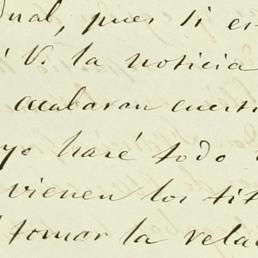 dual, pues si es
V. la noticia
acabaran cuesti
yo haré todo
vienen los tit
tomar la rela